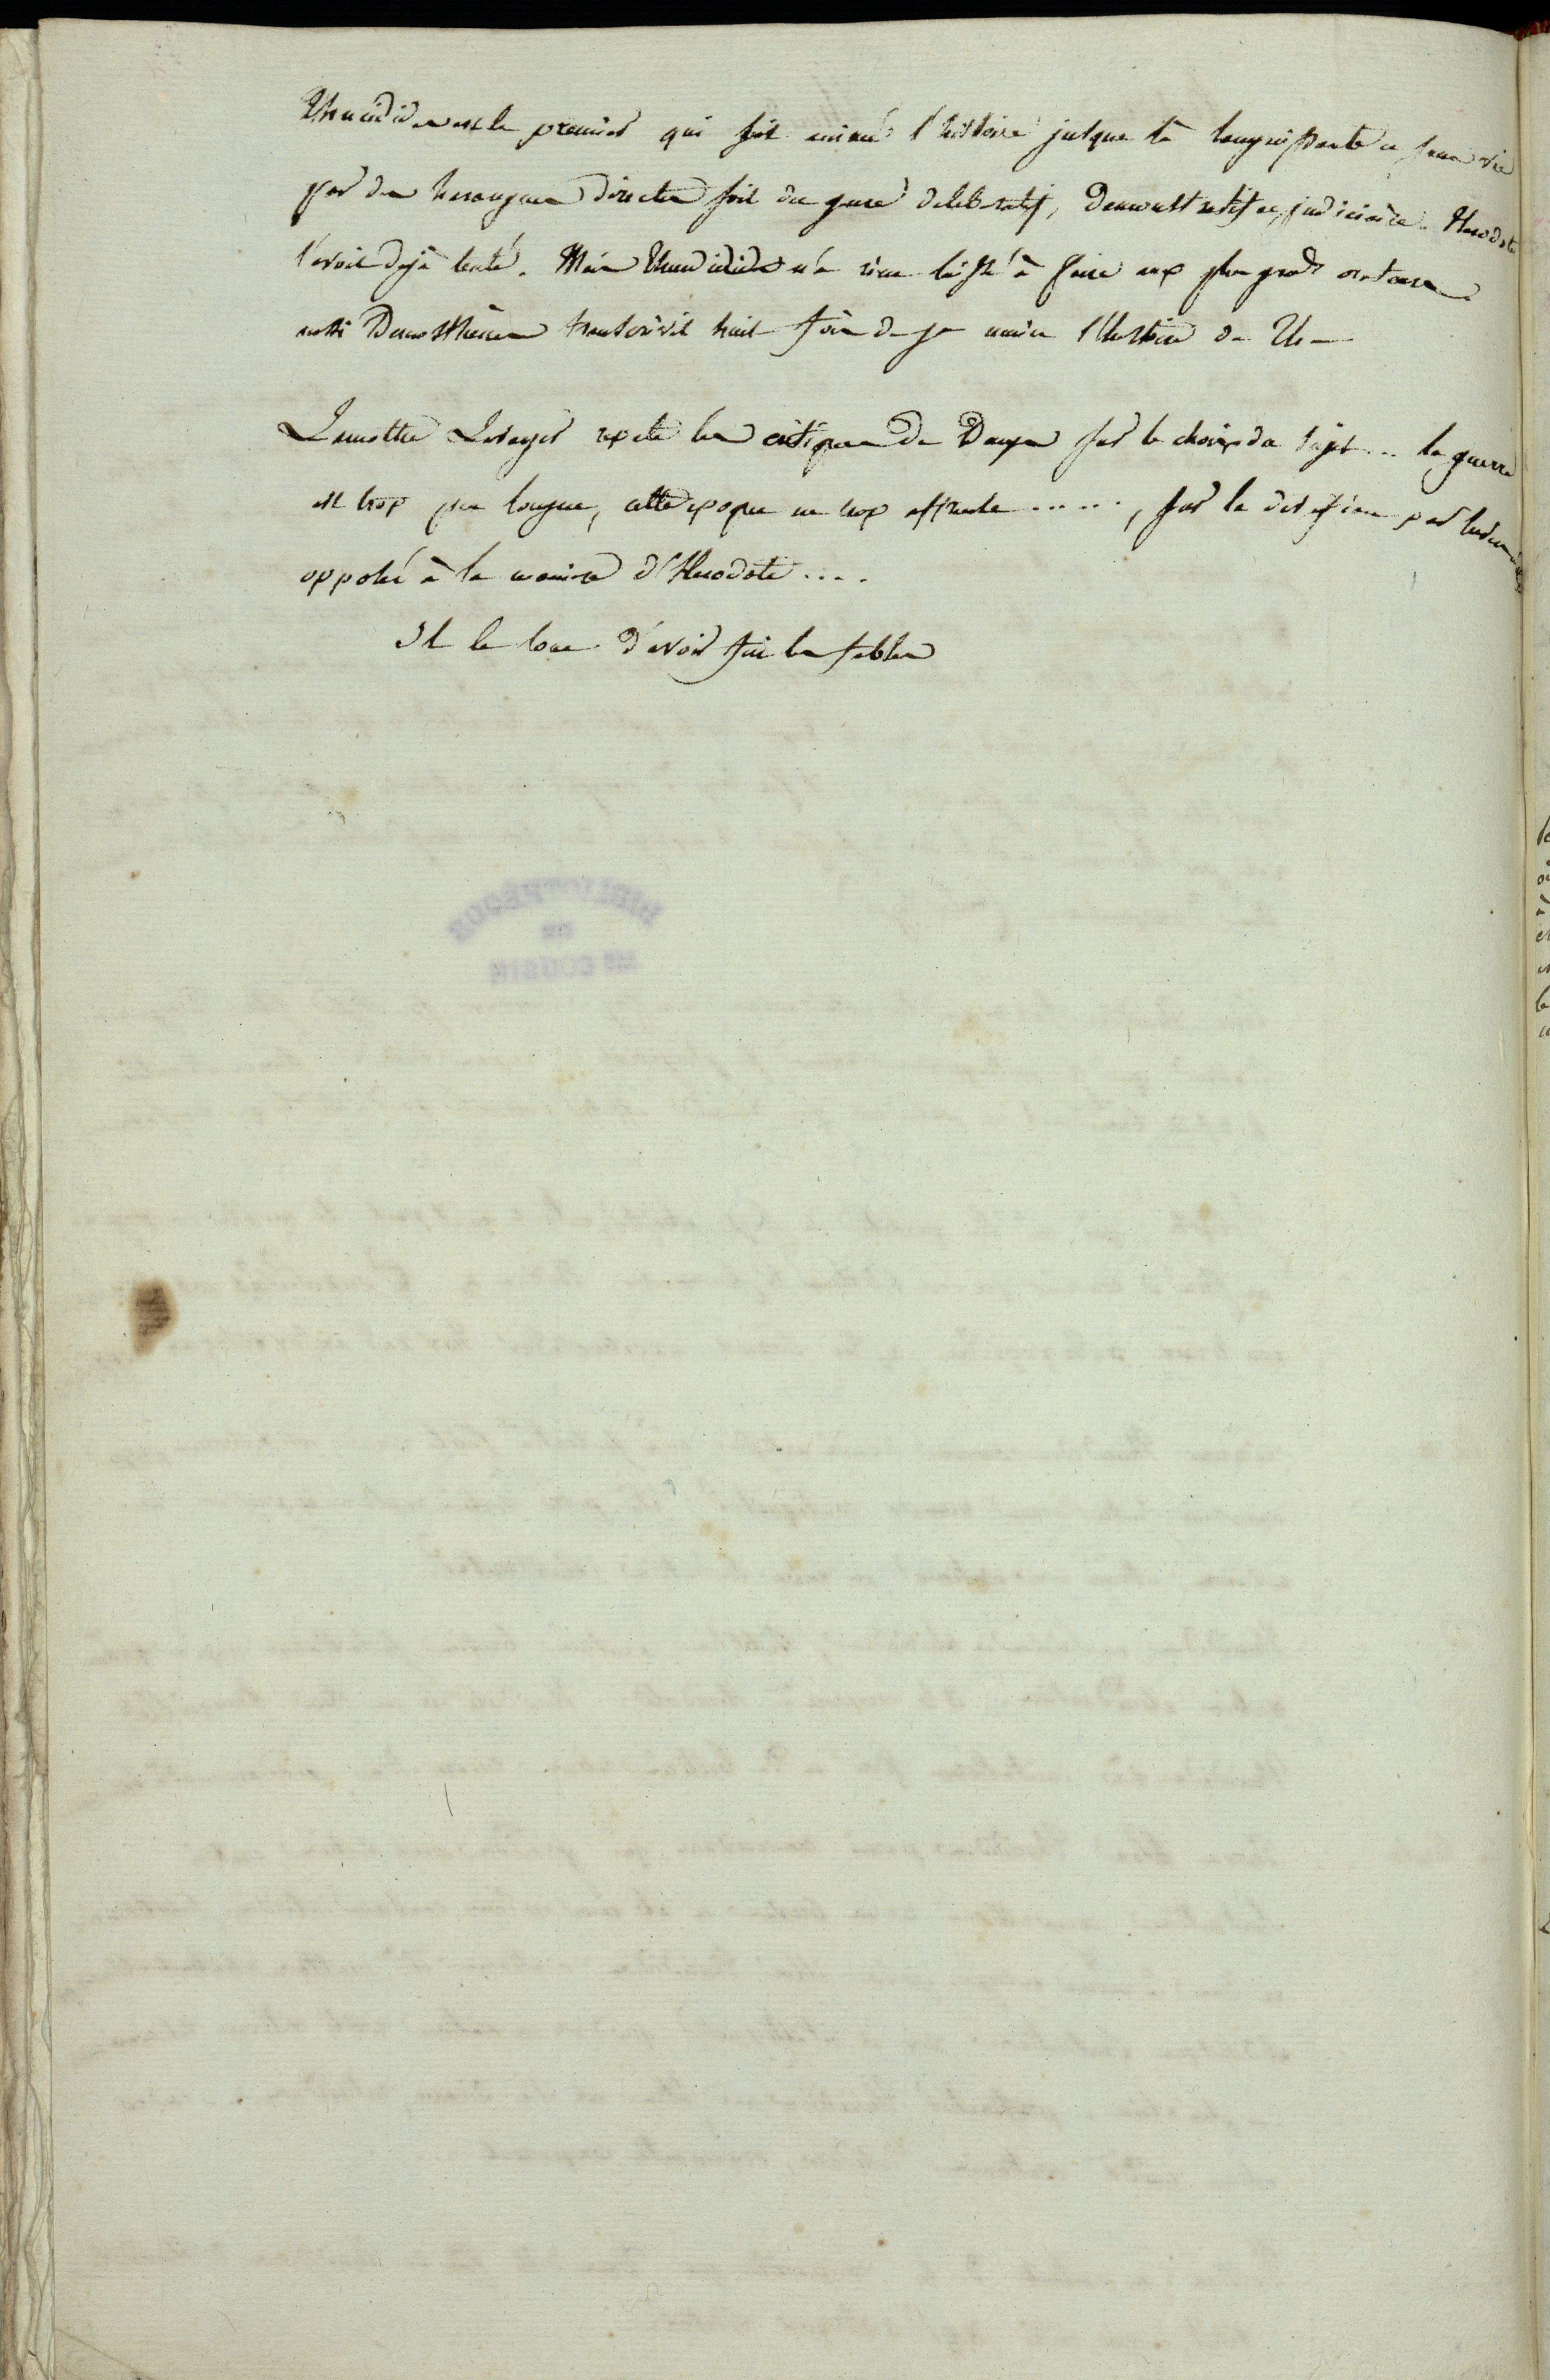 Thucidide est le premier qui ait animé l'histoire jusque là languissante et sans vie
par des harangues directes soit du genre deliberatif, demonstratif et judiciaire. Herodote
l'avoit deja tenté. Mais Thucidide n'a rien laissé à faire aux plus grands orateurs
aussi Demosthènes transcrivit huit fois de sa main l'histoire de Th
Lamothe Levayer repete les critiques de Denys sur le choix du sujet ... la guerre
est trop peu longue, cette epoque est trop affreuse ......, sur la division par
opposée à la manière d'Herodote ....
Il le loue d'avoir fui les fables
BIBLIOTHÈQUE
DE
Mr COUSIN